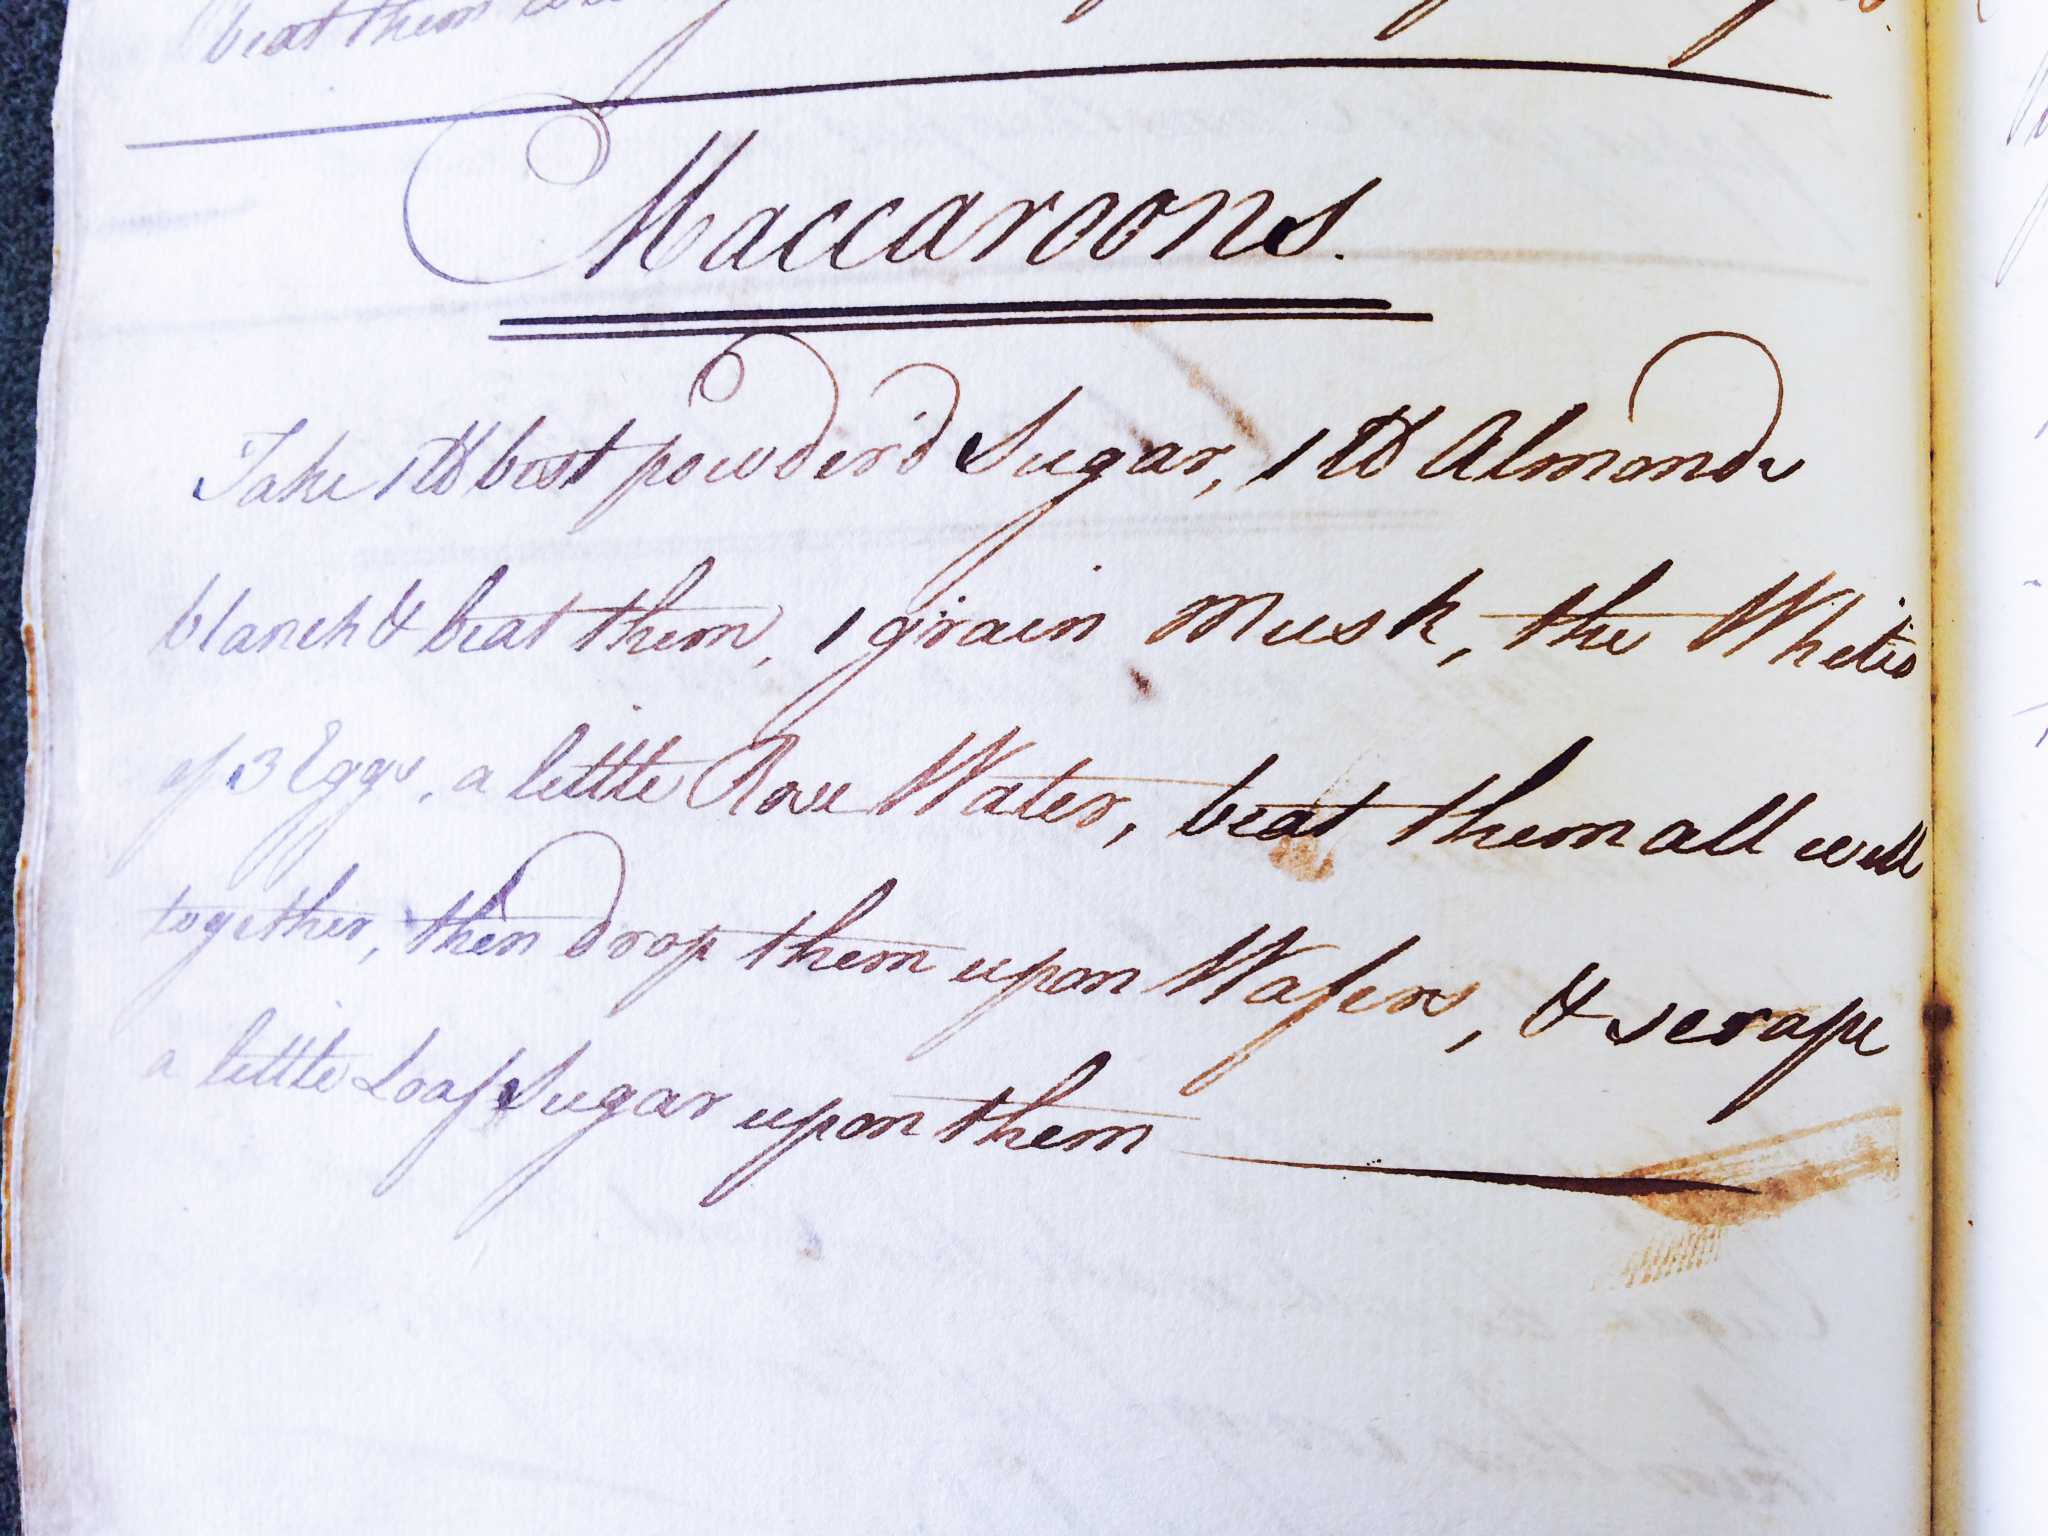 beat them
Maccaroons.
Take 1 lb best powder'd Sugar, 1 lb Almonds
blanch & beat them, 1 grain Musk, the Whites
of 3 Eggs, a little Rose Water, beat them all well
together, then drop them upon Wafers, & scrape
a little Loaf Sugar upon them